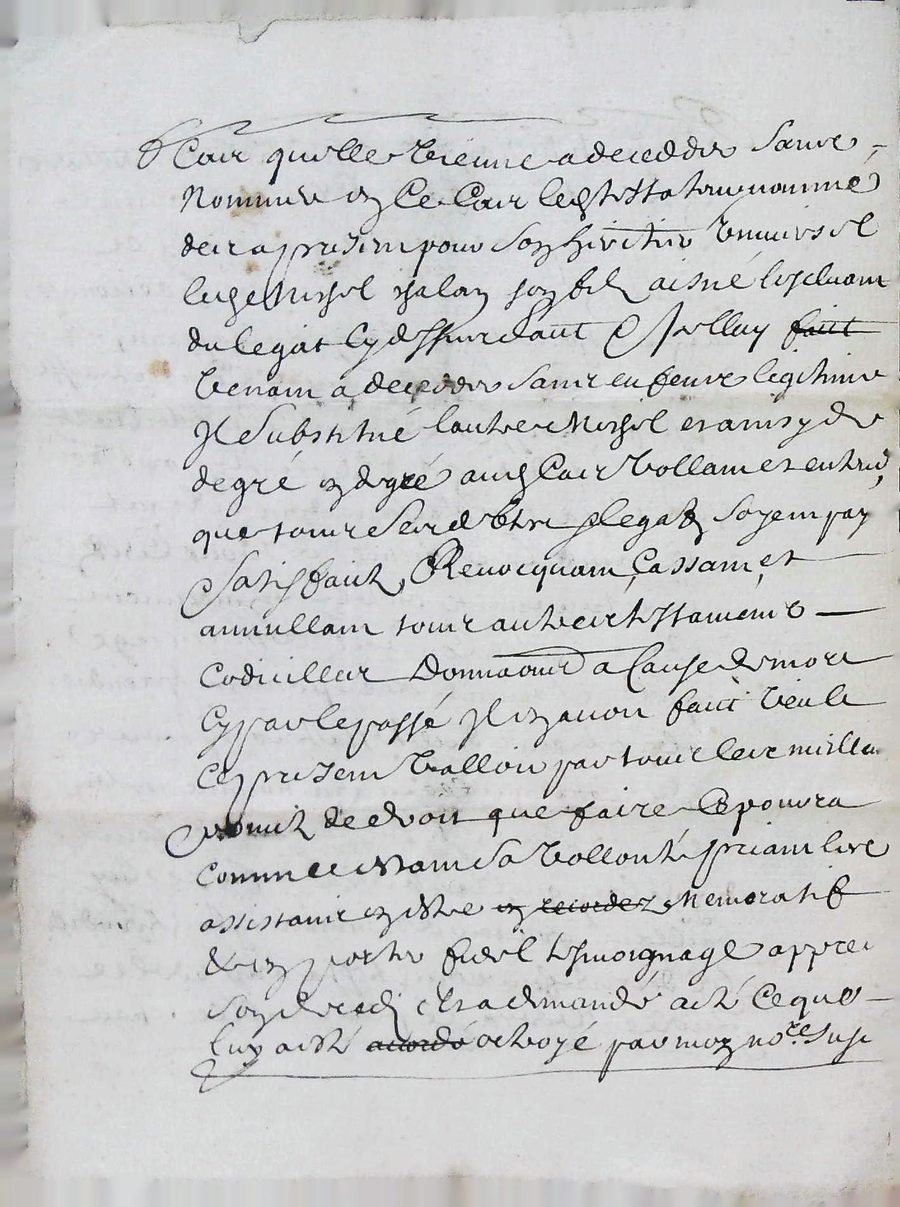 Cas quelle vienne a decedder sans
Nommer en ce cas led testateur nomme
des a present pour son heretier universel
led Michel son fils aisné le
du legat cy dessus dict & icelluy fait
Venant a decedder sans enfens legitime
Il substitué lautre Michel et ainsy de
degré en degré aud cas vollant et entend
que tous ses debtes legatz soyent pay
Satisfaitz, Revocquant, Cassant, et
annullant tous autres testaments
Codicilles Donnaons a Cause de mort
Cy par le passé Il en avoit fait veult
Ce present valloir par tous les meillr
moyens de droit que faire ce pourra
comme estant sa vollonté priant les
assistants en estre en recordez Memoratif
& en porter fidel tesmoignage appres
son deced et a demandé acte ce que
luy a esté accordé octroyé par moy nore susd